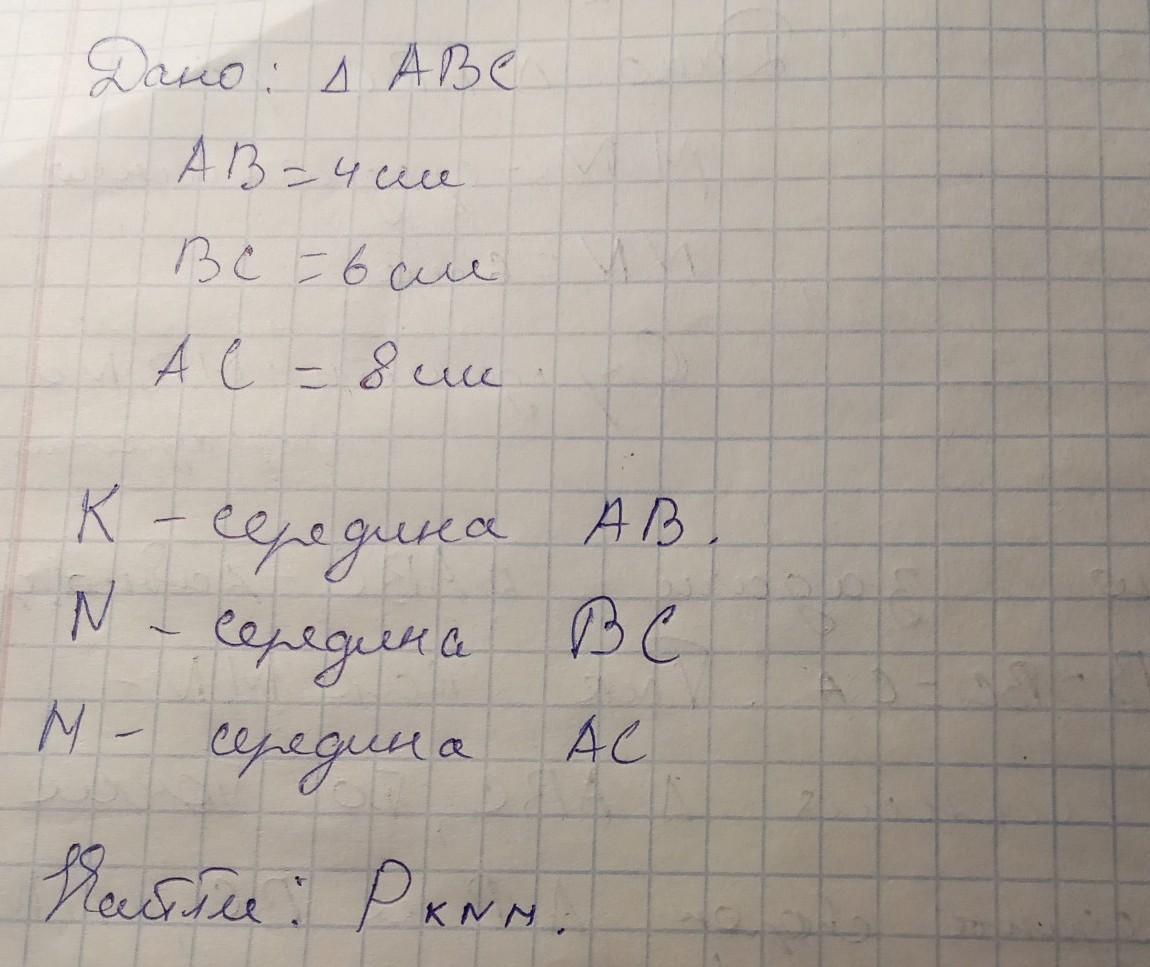 Дано: Δ ABC
AB = 4 см
BC = 6 см
AC = 8 см
K – середина AB.
N – середина BC
M – середина AC
Найти: P KNM.